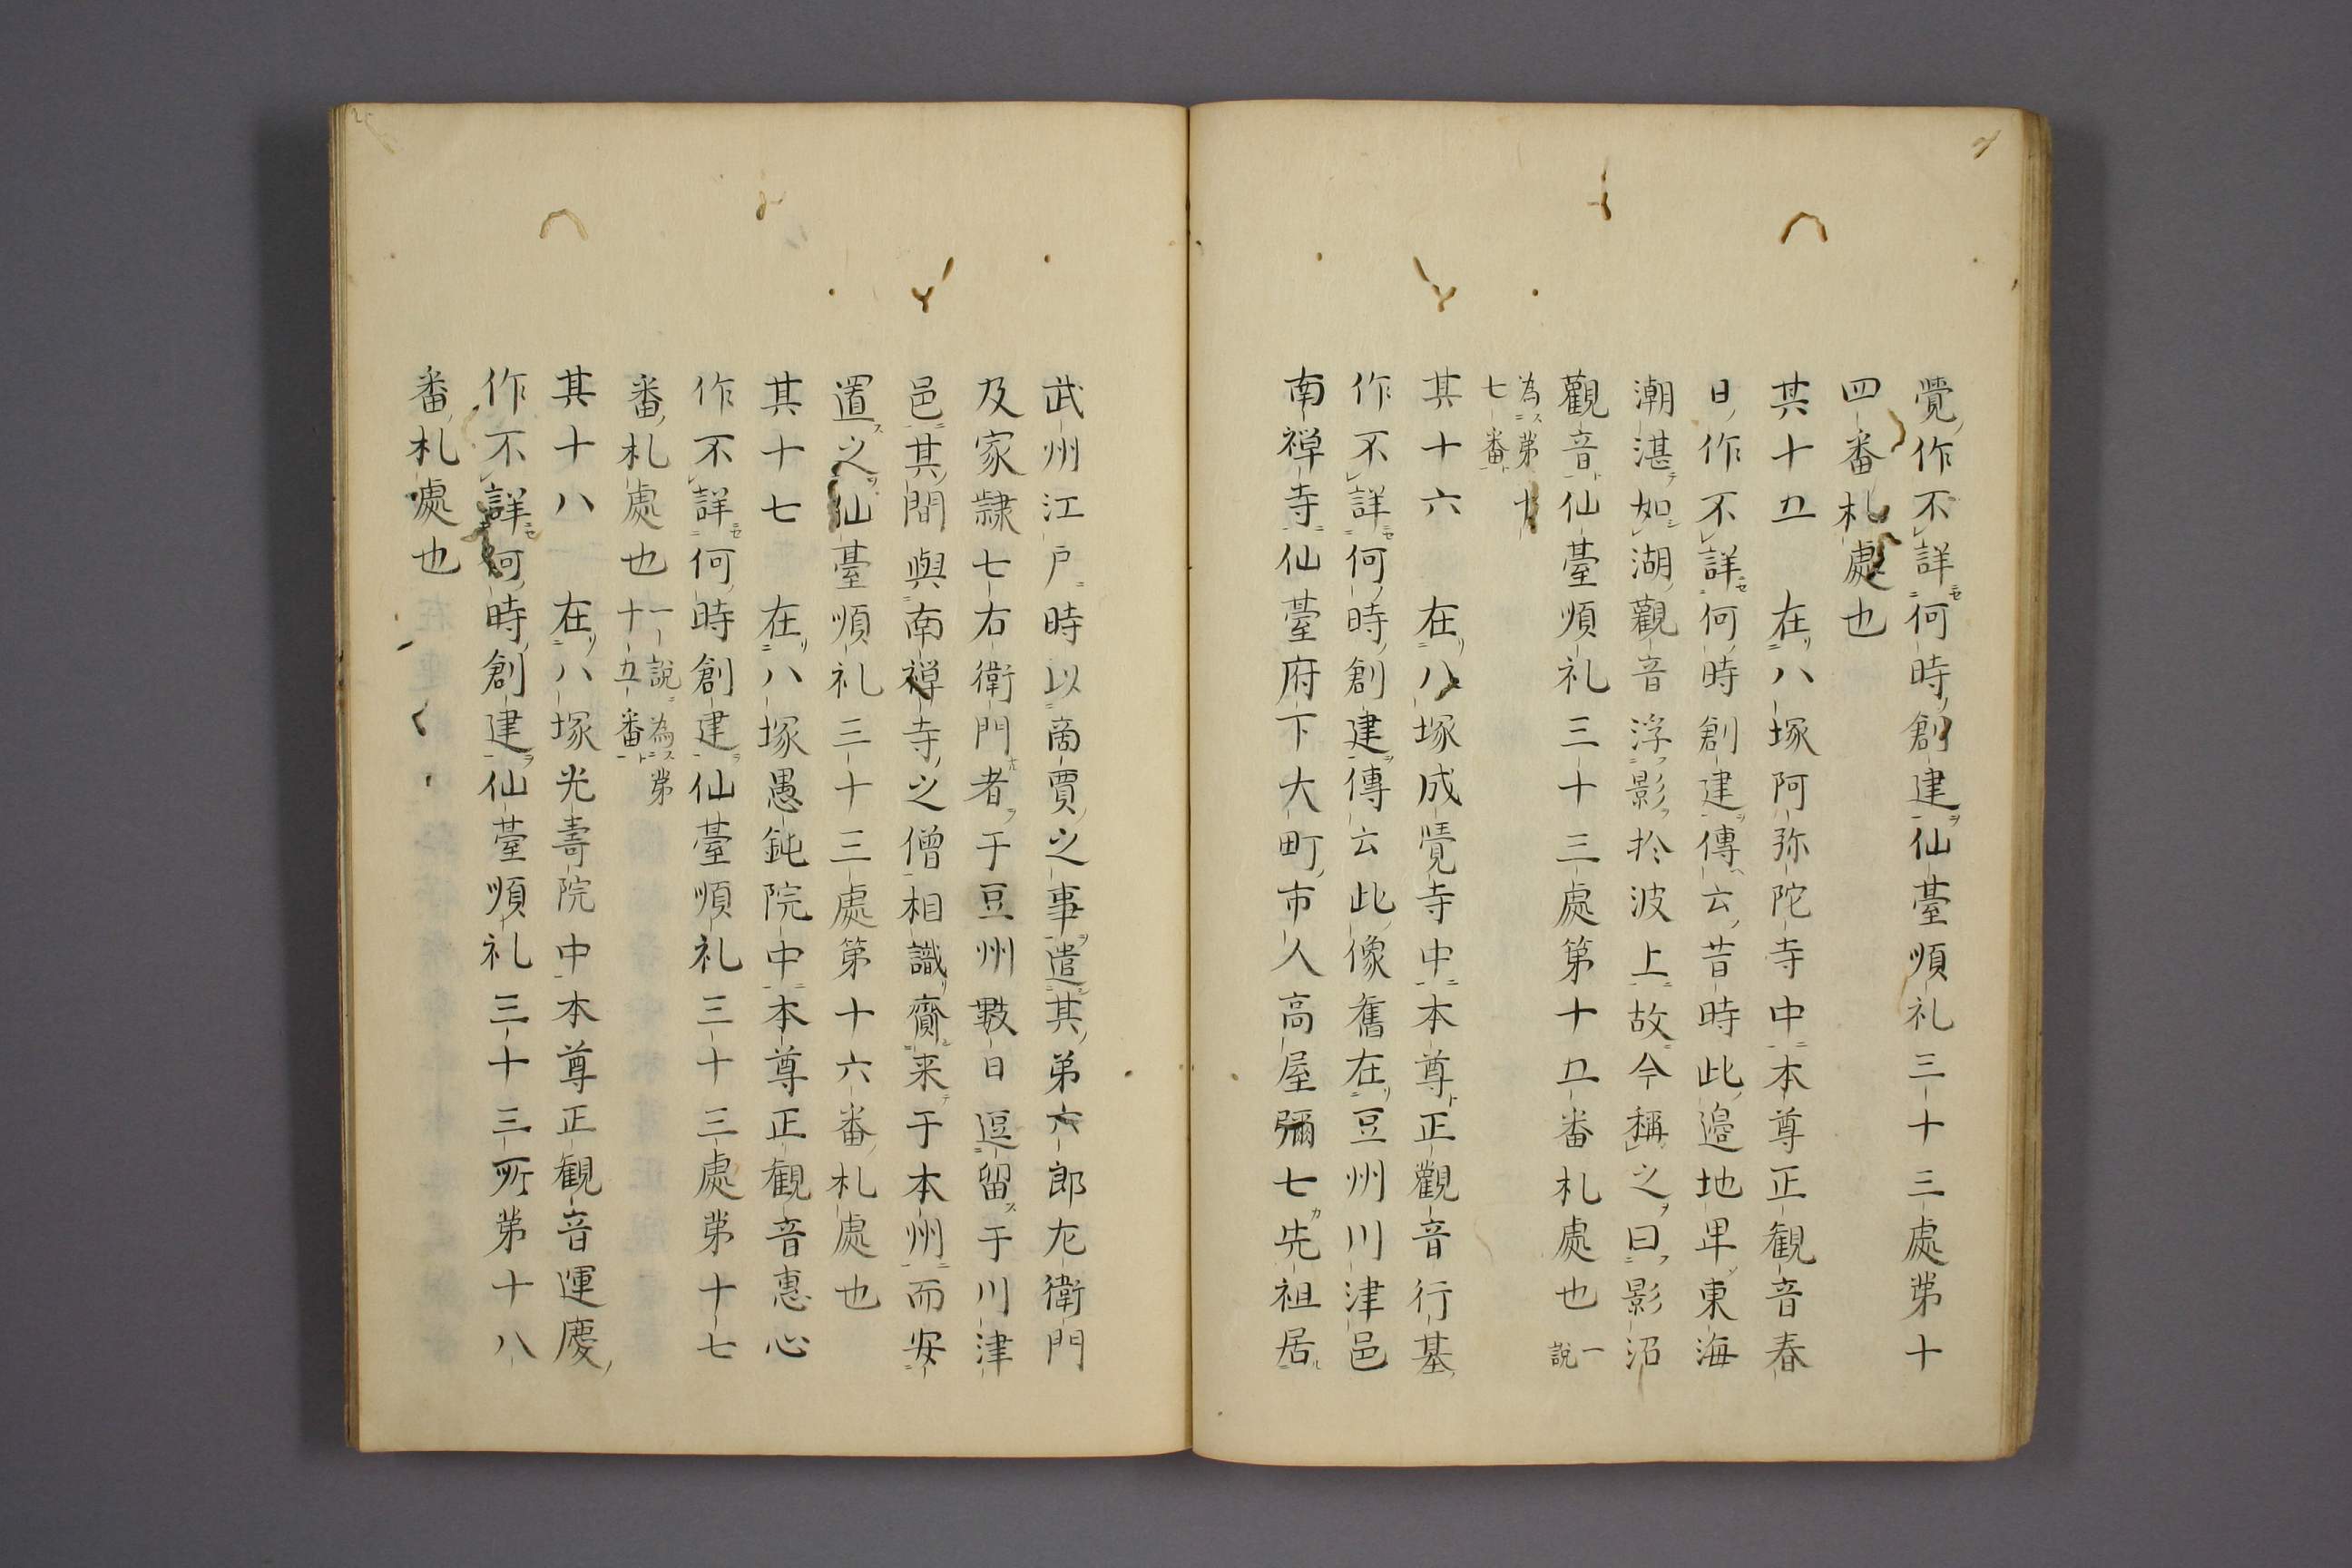 覺作不詳何時創建仙臺順礼三十三處第十
四番札處也
其十五　在八塚阿弥陀寺中本尊正観音春
日作不詳何時創建傳云昔時此邉地卑東海
潮湛如湖觀音浮影於波上故今稱之曰影沼
觀音仙臺順礼三十三處第十五番札處也一說
為第十
七番
其十六　在八塚成覺寺中本尊正觀音行基
作不詳何時創建傳云此像舊在豆州川津邑
南禅寺仙臺府下大町市人高屋彌七先祖居
武州江戸時以商賈之事遣其弟六郎左衛門
及家隷七右衛門者于豆州數日逗留于川津
邑其間與南禅寺之僧相識齎来于本州而安
置之仙臺順礼三十三處第十六番札處也
其十七　在八塚愚鈍院中本尊正観音惠心
作不詳何時創建仙臺順礼三十三處第十七
番札處也一說為第十五番
其十八　在八塚光壽院中本尊正観音運慶
作不詳何時創建仙臺順礼三十三所第十八
番札處也